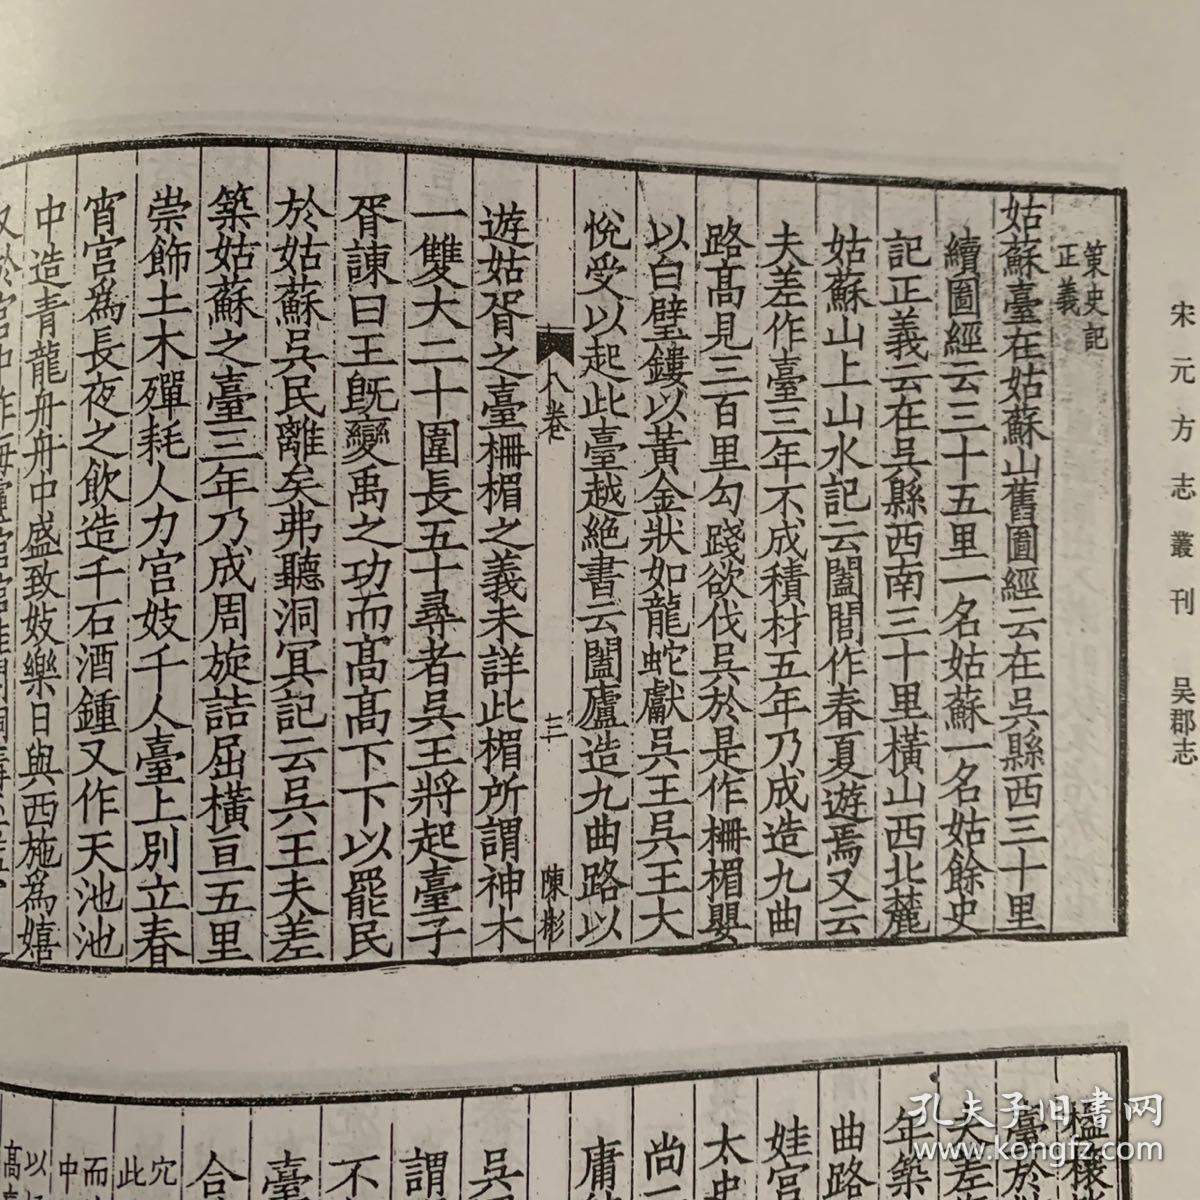 宋元方志叢刊 吴郡志
策史記
正義
姑蘇臺在姑蘇山舊圖經云在吳縣西三十里
續圖經云三十五里一名姑蘇一名姑餘史
記正義云在吳縣西南三十里橫山西北麓
姑蘇山上山水記云闔閭作春夏遊焉又云
夫差作臺三年不成積材五年乃成造九曲
路高見三百里勾踐欲伐吳於是作柵楣嬰
以白璧鏤以黃金狀如龍蛇獻吳王吳王大
悅受以起此臺越絕書云闔廬造九曲路以
八卷 三 陳彬
遊姑胥之臺柵楣之義未詳此楣所謂神木
一雙大二十圍長五十尋者吳王將起臺子
胥諫曰王旣變禹之功而高高下下以罷民
於姑蘇吳民離矣弗聽洞冥記云吳王夫差
築姑蘇之臺三年乃成周旋詰屈橫亘五里
崇飾土木殫耗人力宮妓千人臺上別立春
宵宮爲長夜之飲造千石酒鍾又作天池池
中造青龍舟舟中盛致妓樂日與西施爲嬉
楹榱
臺於
夫差
年築
曲路
娃宮
太史
尚一
庸
吳
謂
不
臺
合
穴
此
而
中
以
高
孔夫子旧書网
www.kongfz.com